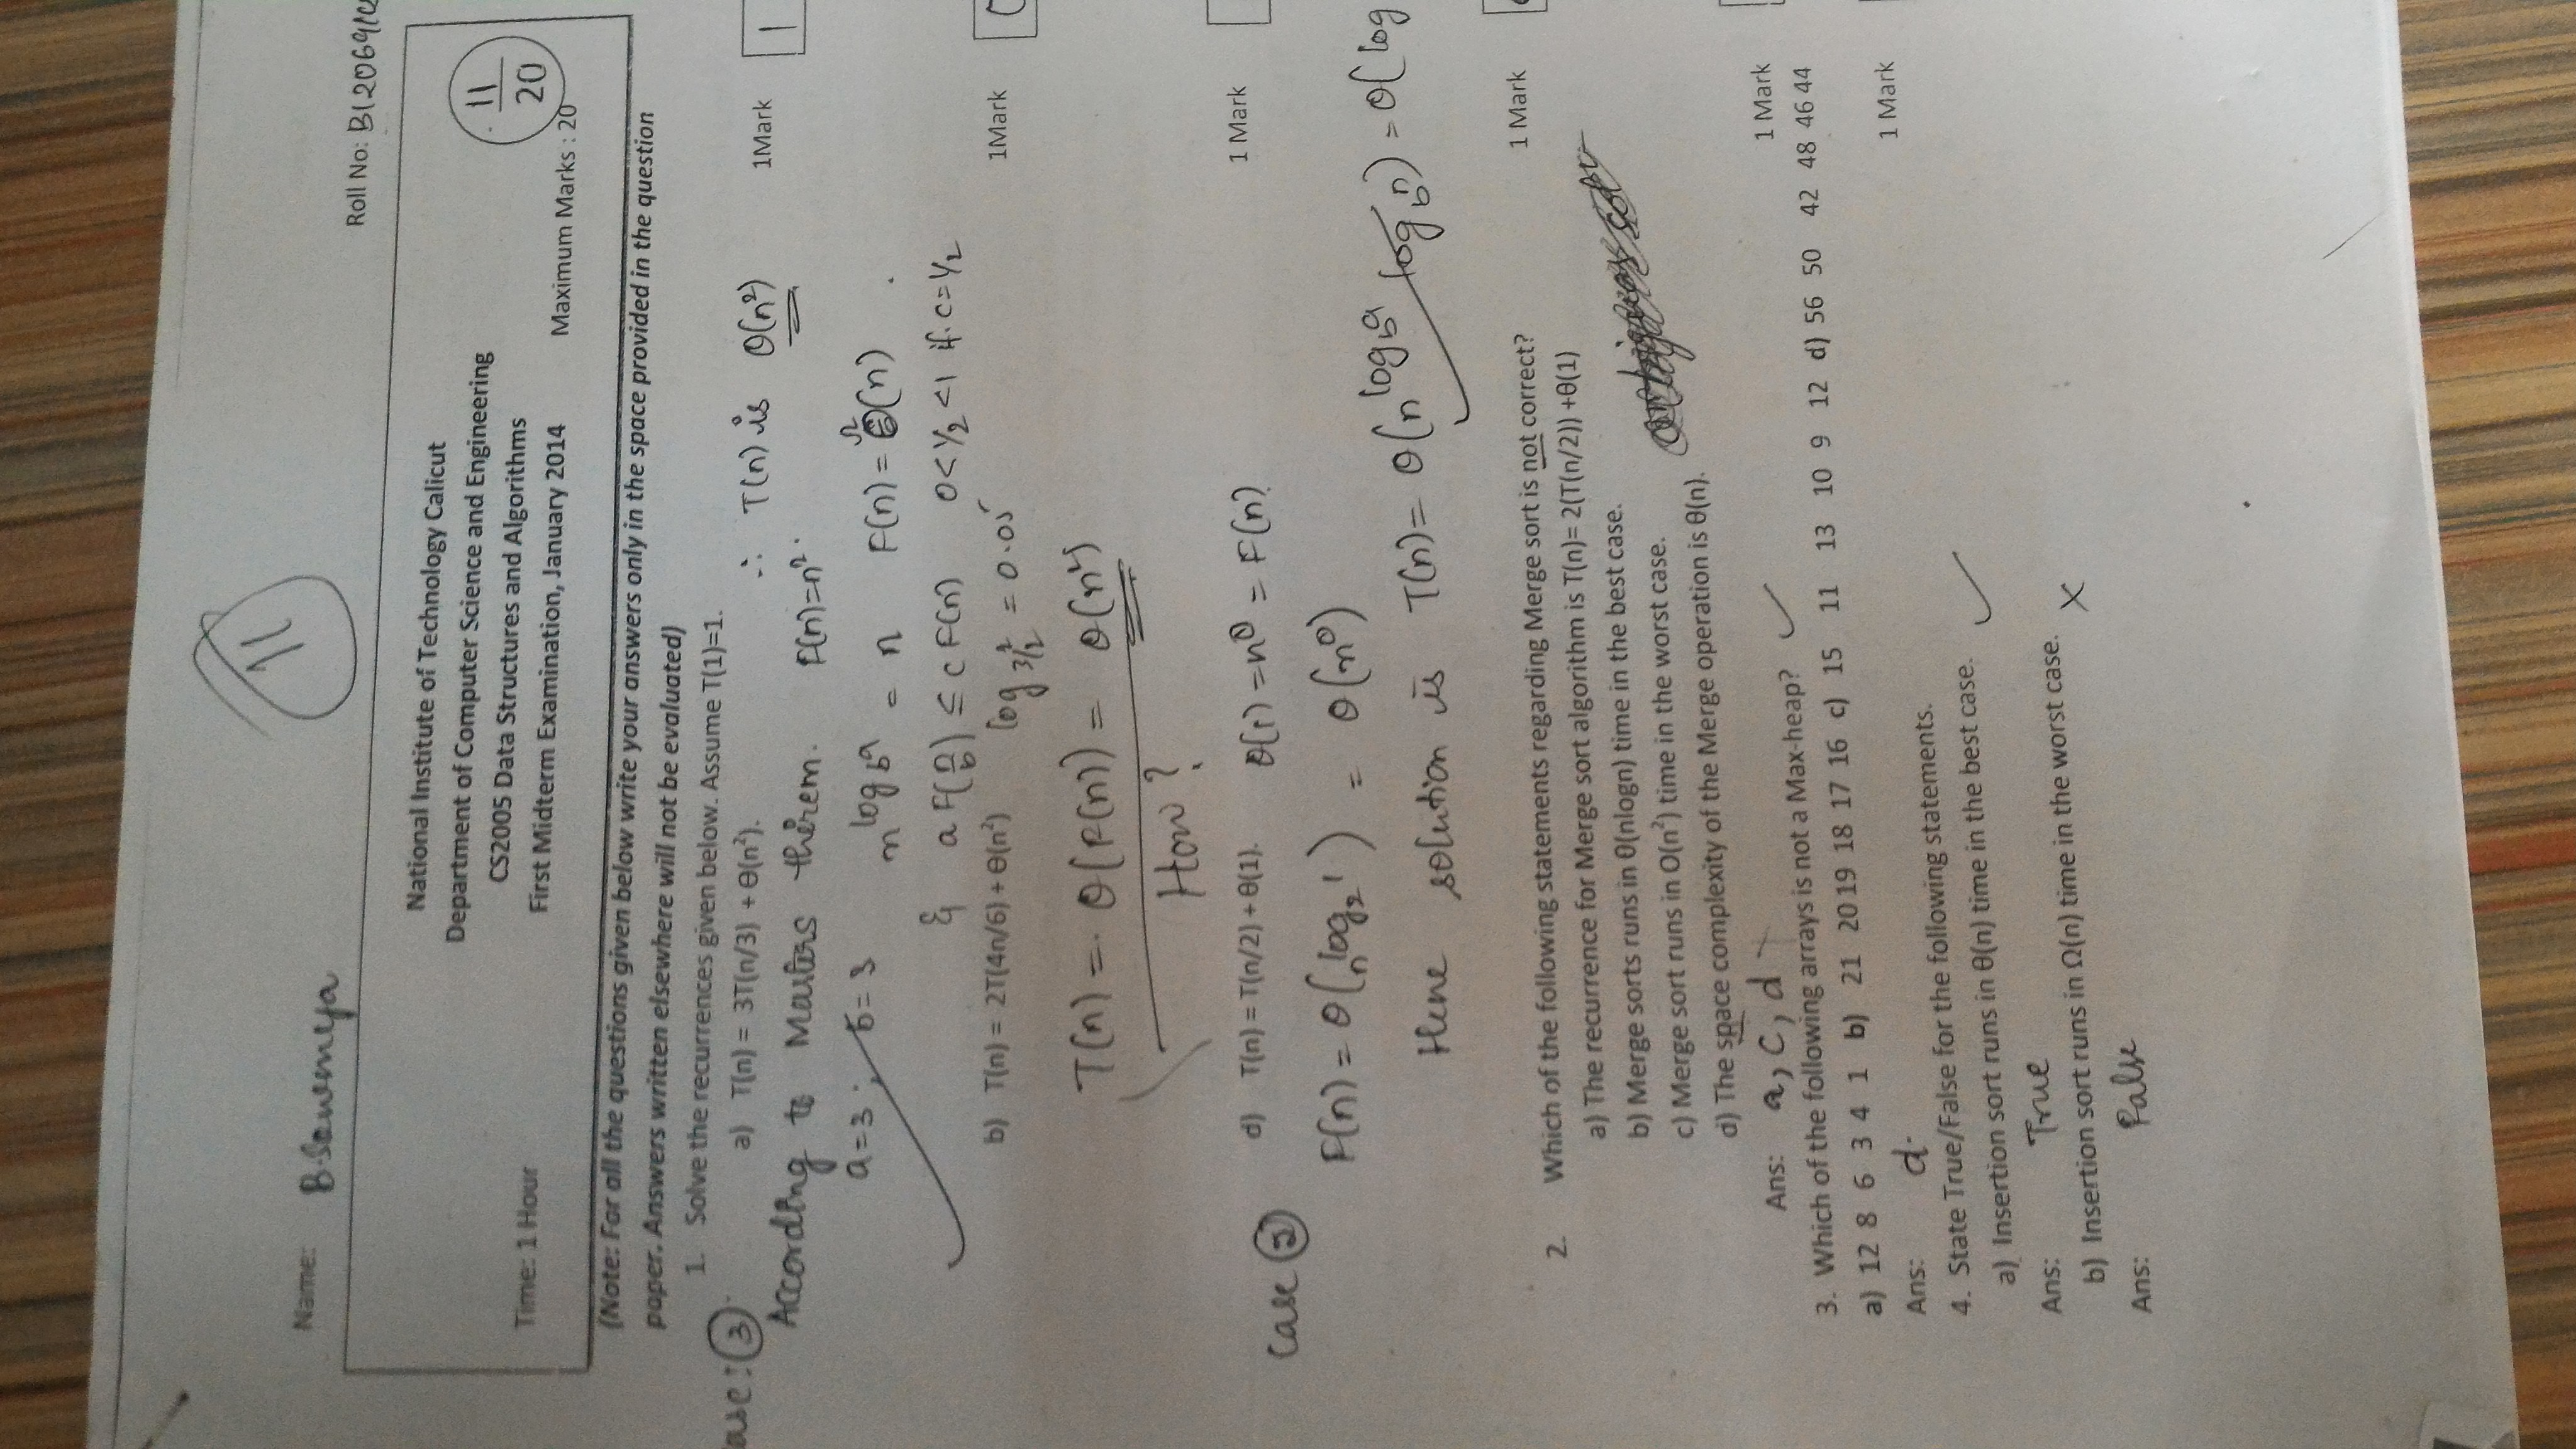 11
Name: B.Sowmya
Roll No: B120691CS
National Institute of Technology Calicut
Department of Computer Science and Engineering
CS2005 Data Structures and Algorithms
Time: 1 Hour
First Midterm Examination, January 2014
Maximum Marks : 20
11/20
(Note: For all the questions given below write your answers only in the space provided in the question
paper. Answers written elsewhere will not be evaluated)
1. Solve the recurrences given below. Assume T(1)=1.
ase: ③
a) T(n) = 3T(n/3) + θ(n²). ∴ T(n) is Θ(n²) 1Mark 1
According to Masters therem. F(n)=n²
a=3 ; b=3 n^log_b a = n F(n) = Ω(n)
& a F(n/b) ≤ c F(n) 0<1/2<1 if c=1/2
b) T(n) = 2T(4n/6) + θ(n²) log 3/2 = 0.05 1Mark
T(n) = θ(F(n)) = θ(n²)
How?
d) T(n) = T(n/2) + θ(1). θ(1) = n⁰ = F(n) 1 Mark
Case ②
F(n) = θ(n^log₂1) = θ(n⁰)
Hene solution is T(n) = θ(n^log_b a log_b n) = θ(log
2. Which of the following statements regarding Merge sort is not correct? 1 Mark
a) The recurrence for Merge sort algorithm is T(n)= 2(T(n/2)) +θ(1)
b) Merge sorts runs in θ(nlogn) time in the best case.
c) Merge sort runs in O(n²) time in the worst case.
d) The space complexity of the Merge operation is θ(n).
Ans: a, c, d
3. Which of the following arrays is not a Max-heap? 1 Mark
a) 12 8 6 3 4 1 b) 21 20 19 18 17 16 c) 15 11 13 10 9 12 d) 56 50 42 48 46 44
Ans: d.
4. State True/False for the following statements. 1 Mark
a) Insertion sort runs in θ(n) time in the best case.
Ans: True
b) Insertion sort runs in Ω(n) time in the worst case.
Ans: False